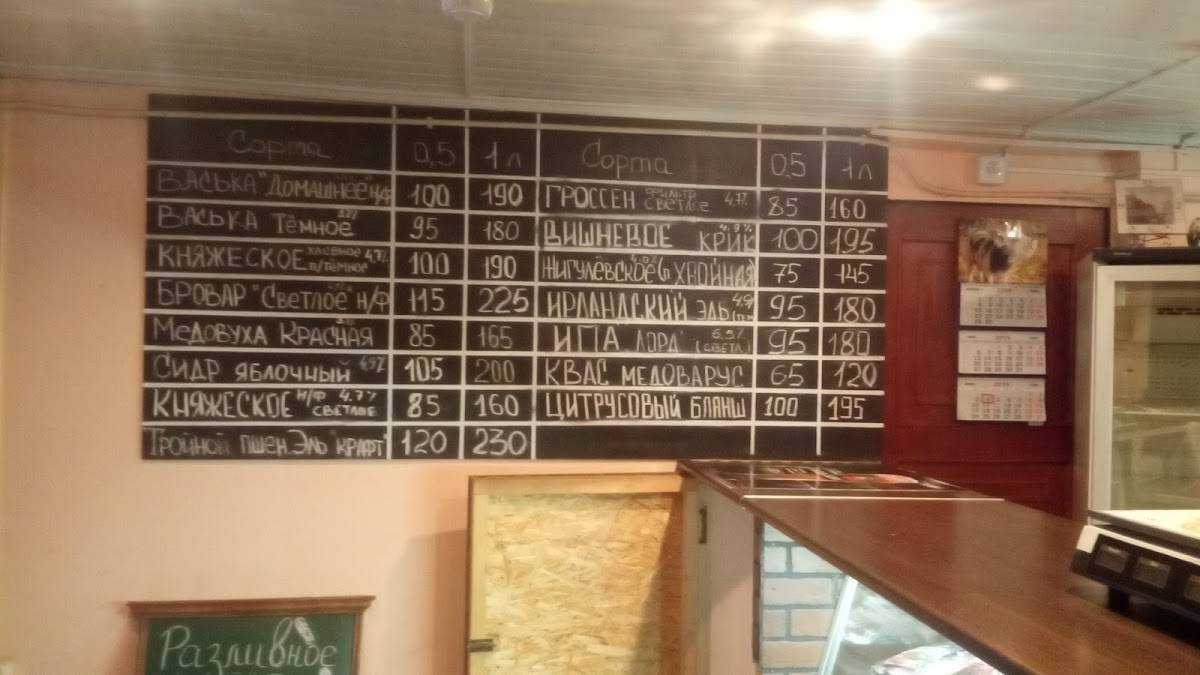 Сорта 0,5 1л
ВАСЬКА "ДОМАШНЕЕ" Н/Ф 100 190
ВАСЬКА ТЁМНОЕ 95 180
КНЯЖЕСКОЕ ХЛЕБНОЕ 4,7% П/ТЁМНОЕ 100 190
БРОВАР "СВЕТЛОЕ" Н/Ф 115 225
МЕДОВУХА КРАСНАЯ 85 165
СИДР ЯБЛОЧНЫЙ 4,5% 105 200
КНЯЖЕСКОЕ Н/Ф 4.7% СВЕТЛОЕ 85 160
ТРОЙНОЙ ПШЕН. ЭЛЬ "КРАФТ" 120 230
Сорта 0,5 1л
ГРОССЕН ФИЛЬТР СВЕТЛОЕ 4,7% 85 160
ВИШНЕВОЕ КРИК 4.9% 100 195
ЖИГУЛЁВСКОЕ ХВОЙНАЯ) 4.0% 75 145
ИРЛАНДСКИЙ ЭЛЬ 4,9 95 180
ИПА "ЛОРД" (СВЕТЛ) 95 180
КВАС МЕДОВАРУС 65 120
ЦИТРУСОВЫЙ БЛАНШ 100 195
Разливное